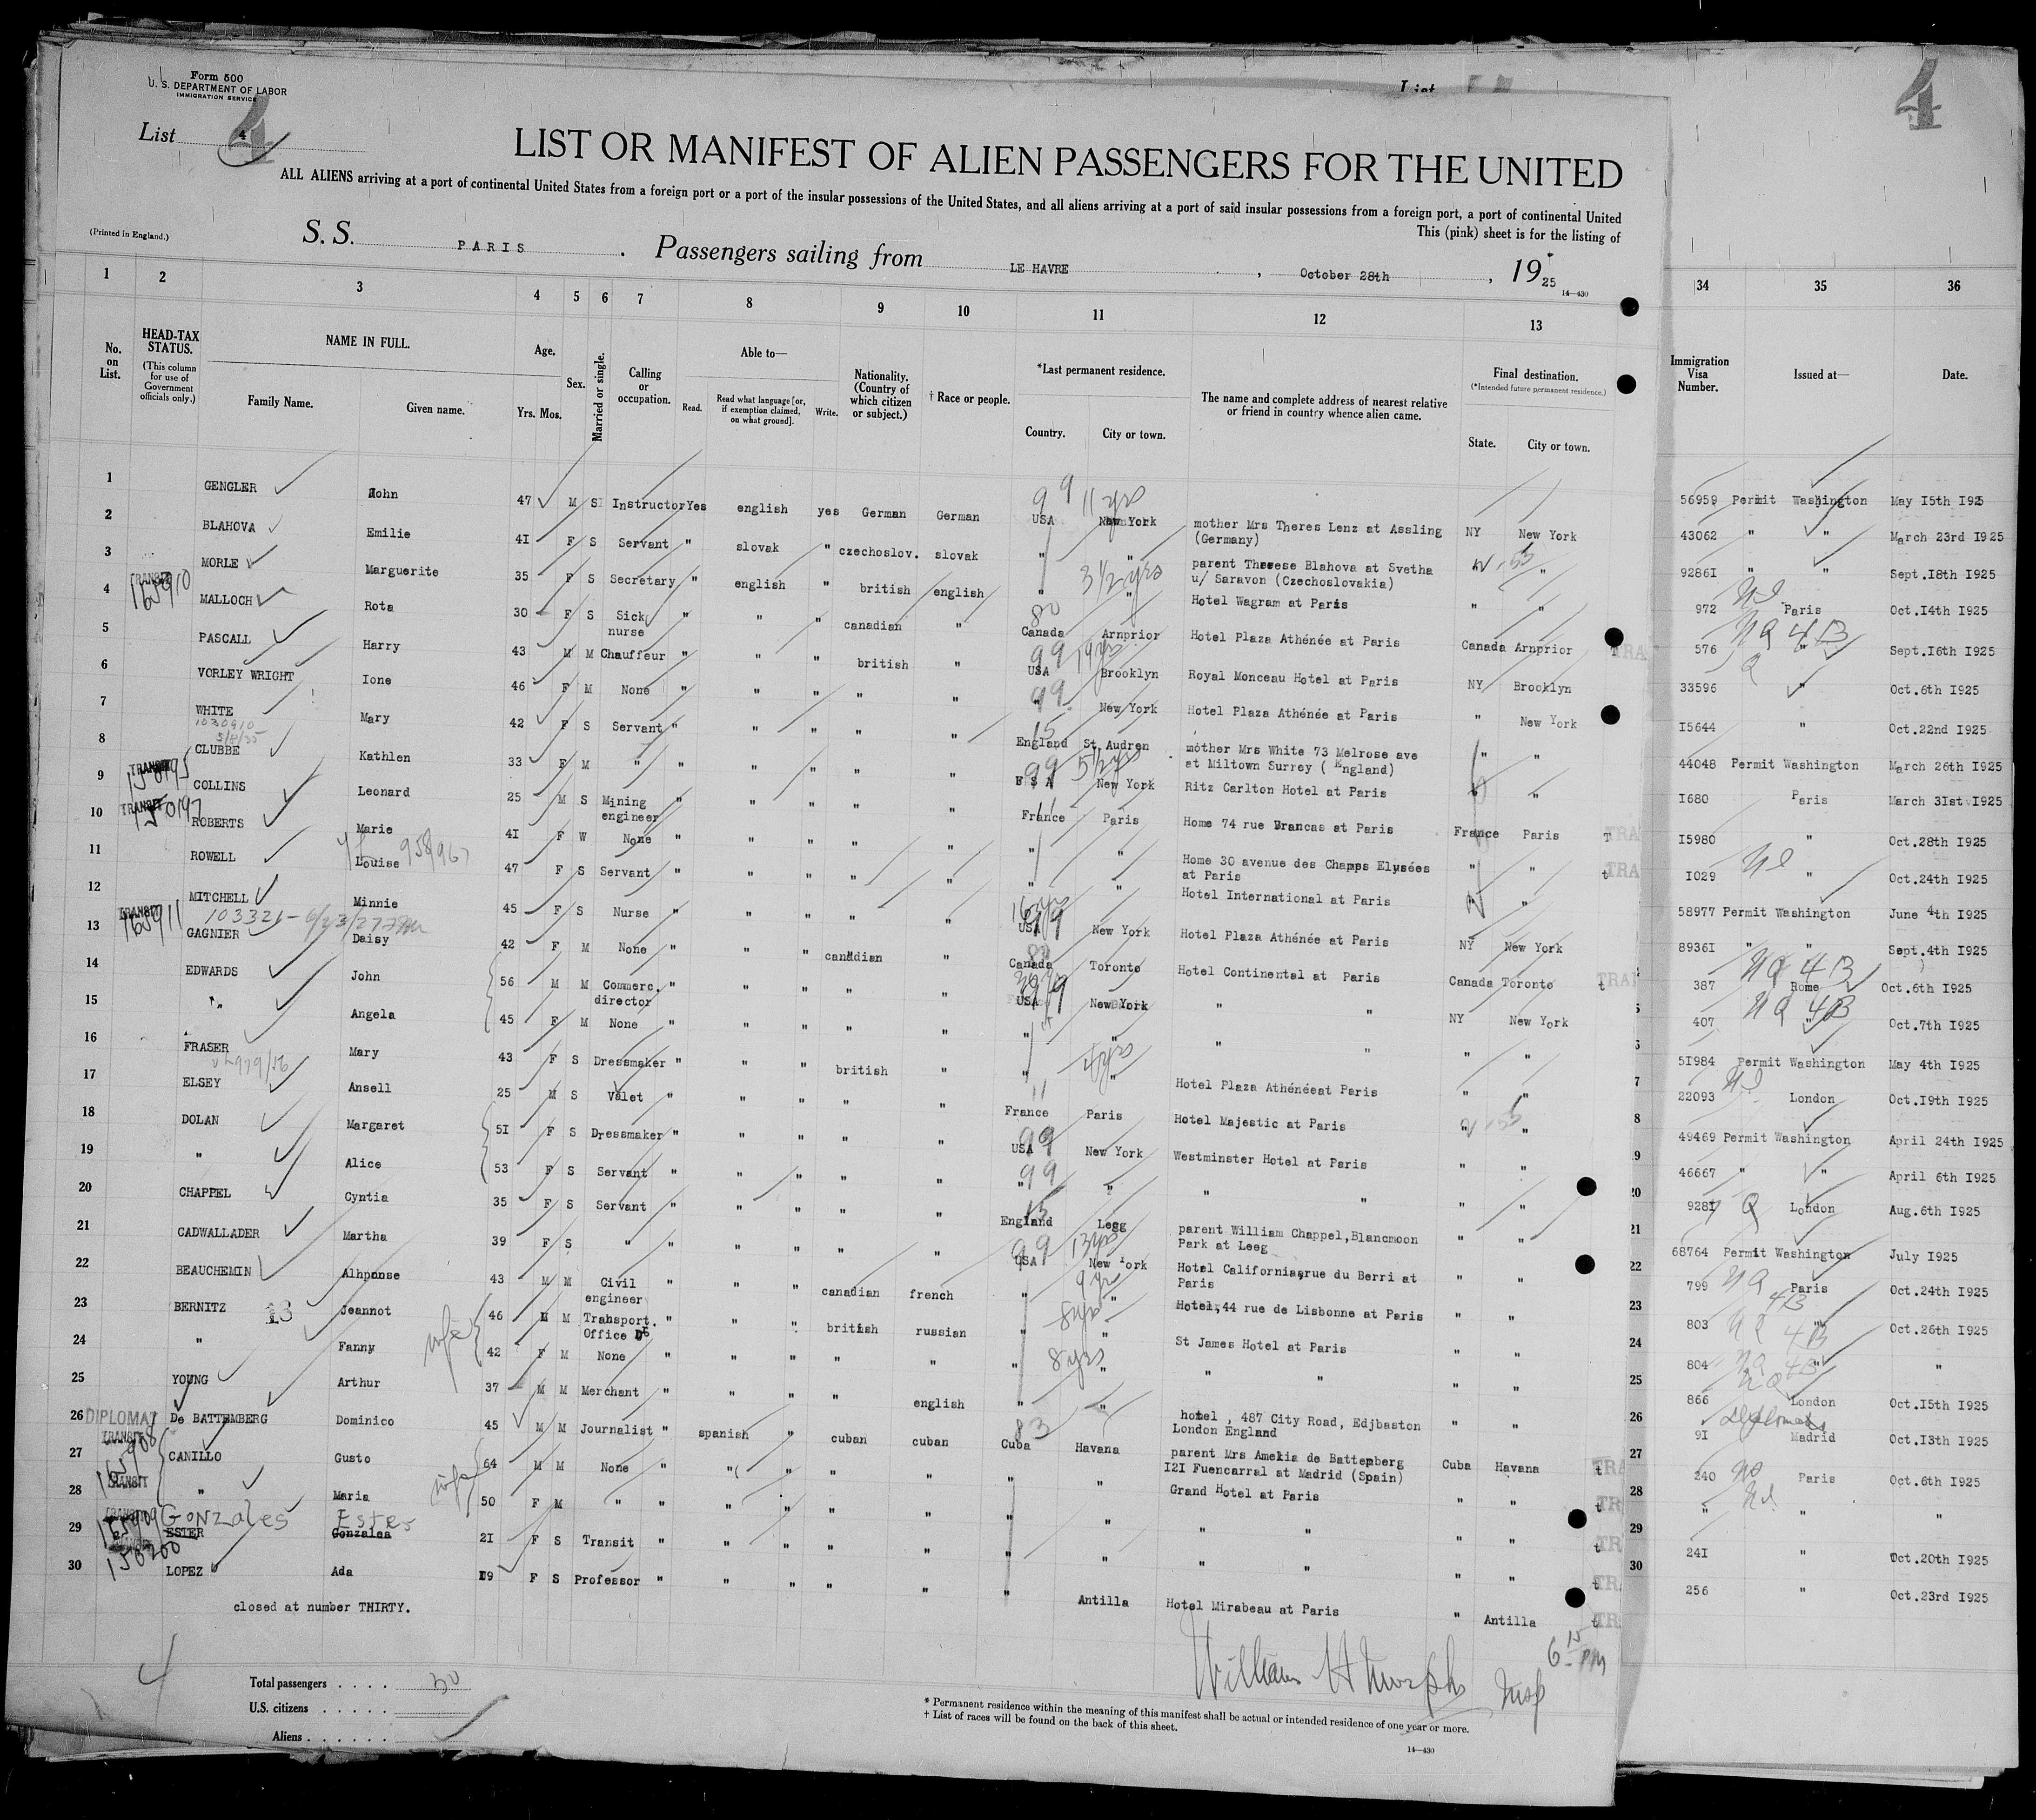 Form 500
U. S. DEPARTMENT OF LABOR
IMMIGRATION SERVICE
List 4
4
List
4
LIST OR MANIFEST OF ALIEN PASSENGERS FOR THE UNITED
ALL ALIENS arriving at a port of continental United States from a foreign port or a port of the insular possessions of the United States, and all aliens arriving at a port of said insular possessions from a foreign port, a port of continental United
This (pink) sheet is for the listing of
(Printed in England.)
S. S. PARIS . Passengers sailing from LE HAVRE , October 28th , 19 25
14—430
1 2 3 4 5 6 7 8 9 10 11 12 13 34 35 36
No. on List.
HEAD-TAX STATUS.
(This column for use of Government officials only.)
NAME IN FULL.
Family Name. Given name.
Age.
Yrs. Mos.
Sex.
Married or single.
Calling or occupation.
Able to—
Read. Read what language [or, if exemption claimed, on what ground]. Write.
Nationality. (Country of which citizen or subject.)
† Race or people.
*Last permanent residence.
Country. City or town.
The name and complete address of nearest relative or friend in country whence alien came.
Final destination.
(*Intended future permanent residence.)
State. City or town.
Immigration Visa Number.
Issued at—
Date.
1 GENGLER John 47 M S Instructor Yes english yes German German USA New York 99 11 yrs mother Mrs Theres Lenz at Assling (Germany) NY New York 56959 Permit Washington May 15th 1925
2 BLAHOVA Emilie 41 F S Servant " slovak " czechoslov. slovak " " parent Therese Blahova at Svetha u/ Saravon (Czechoslovakia) " 43062 " " March 23rd 1925
3 MORLE Marguerite 35 F S Secretary " english " british english " " 3 1/2 yrs Hotel Wagram at Paris " " 92861 " " Sept.18th 1925
4 TRANSIT 165910 MALLOCH Rota 30 F S Sick nurse " " " canadian " Canada Arnprior 80 Hotel Plaza Athénée at Paris Canada Arnprior 972 Paris Oct.14th 1925
5 PASCALL Harry 43 M M Chauffeur " " " british " USA Brooklyn 99 19 yrs Royal Monceau Hotel at Paris NY Brooklyn 576 " NQ 4B Sept.16th 1925
6 VORLEY WRIGHT Ione 46 F M None " " " " " " New York 99 Hotel Plaza Athénée at Paris " New York 33596 " Q Oct.6th 1925
7 WHITE Mary 42 F S Servant " " " " " England St. Audren 15 mother Mrs White 73 Melrose ave at Miltown Surrey ( England) " " 15644 " Oct.22nd 1925
1030910
5/8/35
8 CLUBBE Kathlen 33 F M " " " " " " U S A New York 99 5 1/2 yrs Ritz Carlton Hotel at Paris " " 44048 Permit Washington March 26th 1925
9 TRANSIT 150195 COLLINS Leonard 25 M S Mining engineer " " " " " France Paris 11 Home 74 rue Brancas at Paris France Paris 1680 Paris March 31st 1925
10 TRANSIT 150197 ROBERTS Marie 41 F W None " " " " " " " Home 30 avenue des Champs Elysées at Paris " " 15980 " Oct.28th 1925
11 ROWELL Louise 47 F S Servant " " " " " " " Hotel International at Paris " " 1029 " Oct.24th 1925
12 MITCHELL Minnie 45 F S Nurse " " " " " USA New York 99 16 yrs Hotel Plaza Athénée at Paris NY New York 58977 Permit Washington June 4th 1925
13 TRANSIT 165911 GAGNIER Daisy 42 F M None " " " canadian " Canada Toronto 80 Hotel Continental at Paris Canada Toronto 89361 " " Sept.4th 1925
14 EDWARDS John 56 M M Commerc. director " " " " " USA New York 99 " " NY New York 387 Rome NQ 4B Oct.6th 1925
15 " Angela 45 F M None " " " " " " " " " " 407 " NQ 4B Oct.7th 1925
16 FRASER Mary 43 F S Dressmaker " " " british " " " Hotel Plaza Athénéeat Paris " " 51984 Permit Washington May 4th 1925
17 ELSEY Ansell 25 M S Valet " " " " " France Paris 11 Hotel Majestic at Paris " " 22093 London Oct.19th 1925
18 DOLAN Margaret 51 F S Dressmaker " " " " " USA New York 99 Westminster Hotel at Paris " " 49469 Permit Washington April 24th 1925
19 " Alice 53 F S Servant " " " " " " " 99 " " " " 46667 " " April 6th 1925
20 CHAPPEL Cyntia 35 F S Servant " " " " " England Leeg 15 parent William Chappel,Blancmoon Park at Leeg " " 9281 Q London Aug.6th 1925
21 CADWALLADER Martha 39 F S " " " " " " USA New York 99 13 yrs Hotel California,rue du Berri at Paris " " 68764 Permit Washington July 1925
22 BEAUCHEMIN Alhponse 43 M M Civil engineer " " " canadian french " " 9 yrs Hotel,44 rue de Lisbonne at Paris " " 799 Paris NQ 4B Oct.24th 1925
23 BERNITZ 13 Jeannot 46 M M Transport. Office " " " british russian " " 8 yrs St James Hotel at Paris " " 803 " NQ 4B Oct.26th 1925
24 " wife Fanny 42 F M None " " " " " " " 8 yrs " " " " 804 " NQ 4B "
25 YOUNG Arthur 37 M M Merchant " " " " english " " hotel , 487 City Road, Edjbaston London England " " 866 London NQ Oct.15th 1925
26 DIPLOMAT De BATTEMBERG Dominico 45 M M Journalist " spanish " cuban cuban Cuba Havana 83 parent Mrs Amelia de Battemberg 121 Fuencarral at Madrid (Spain) Cuba Havana 91 Diplomats Madrid Oct.13th 1925
27 TRANSIT 165908 CANILLO Gusto 64 M M None " " " " " " " Grand Hotel at Paris " " 240 Paris Oct.6th 1925
28 TRANSIT " wife Maria 50 F M " " " " " " " " " " " " " " "
29 TRANSIT 165909 Gonzales Ester
ESTER Gonzalea 21 F S Transit " " " " " " " " " " " 241 " Oct.20th 1925
30 150200 LOPEZ Ada 19 F S Professor " " " " " " Antilla Hotel Mirabeau at Paris " Antilla 256 " Oct.23rd 1925
closed at number THIRTY.
4
William H Murphy Insp
6 15 PM
Total passengers . . . . 30
U.S. citizens . . . . .
Aliens . . . . . .
* Permanent residence within the meaning of this manifest shall be actual or intended residence of one year or more.
† List of races will be found on the back of this sheet.
14—430